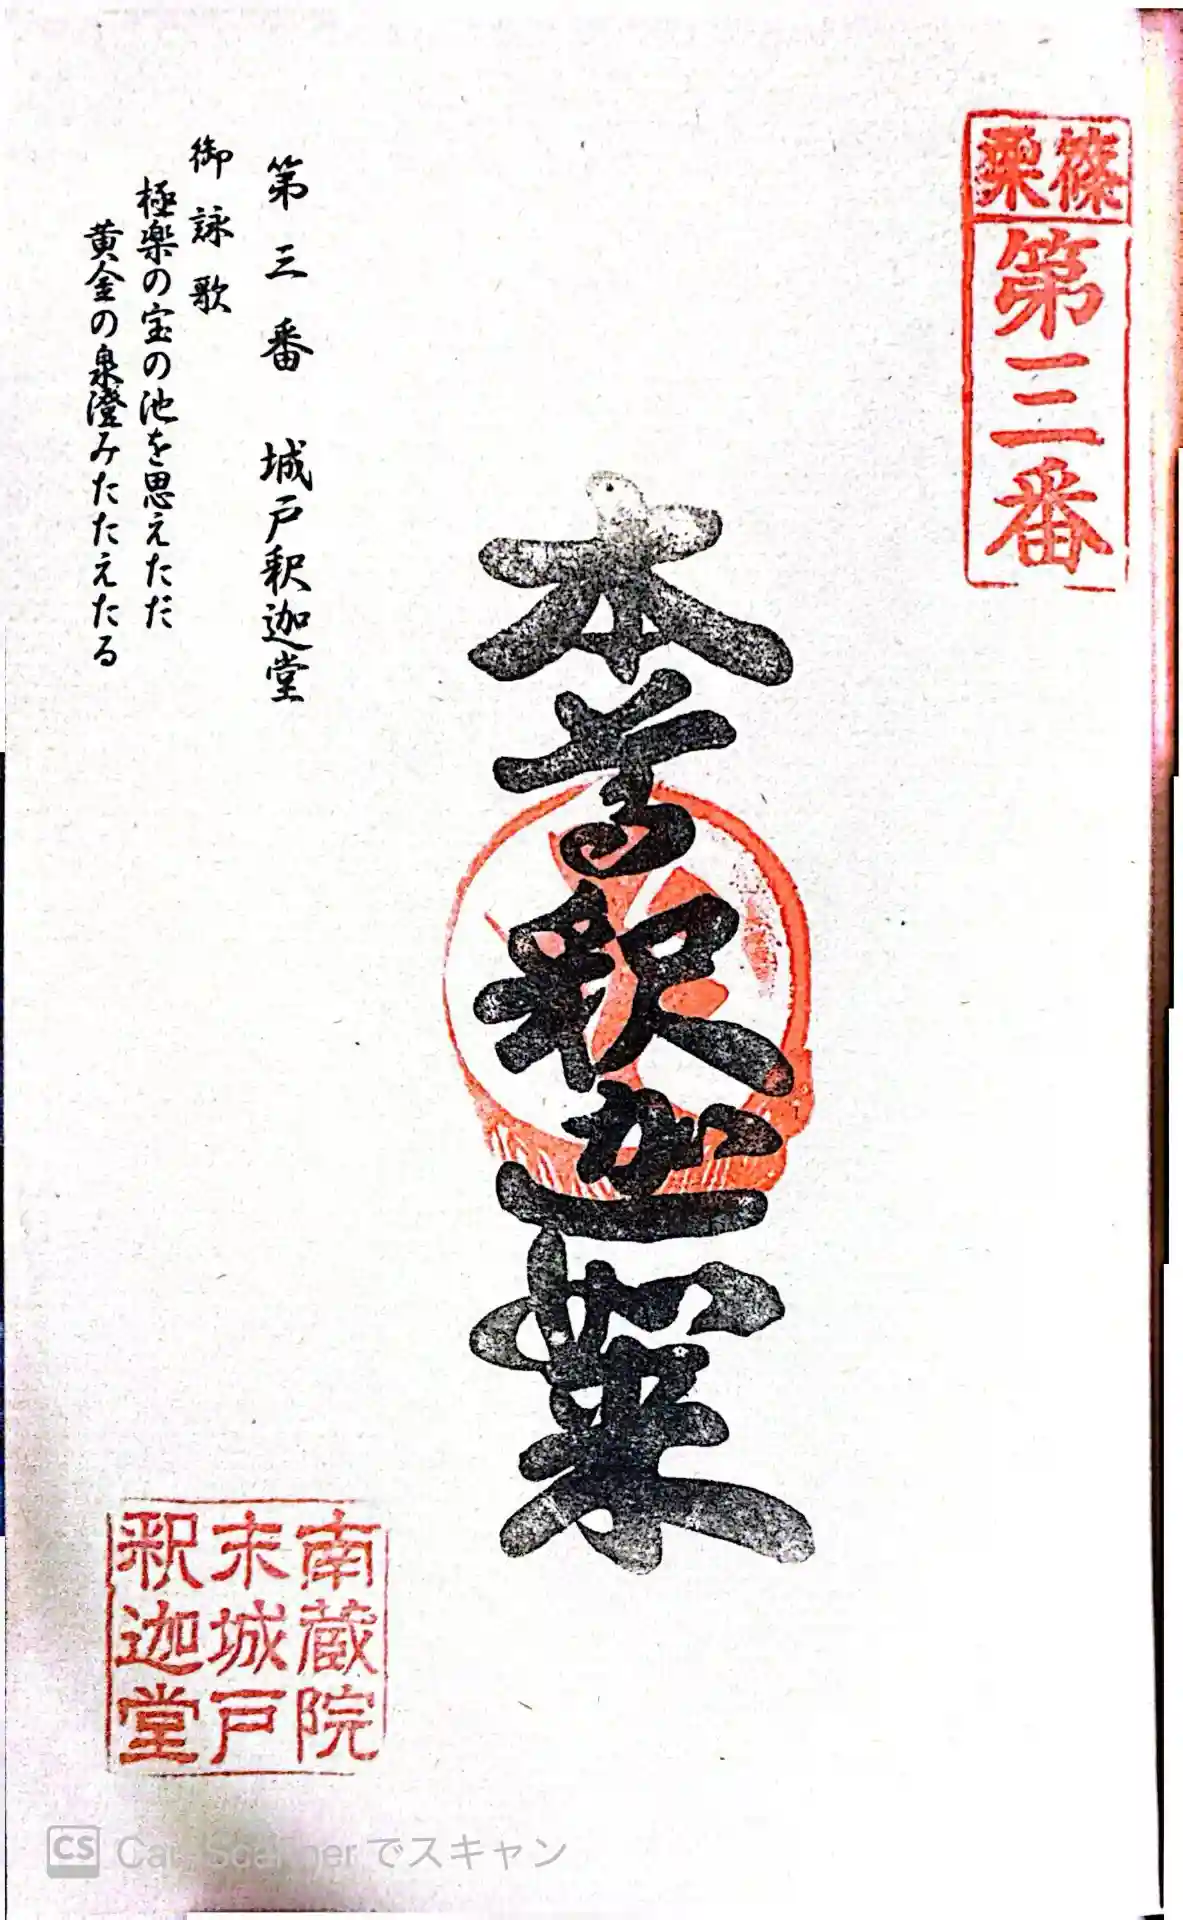 篠栗
第三番
本尊釈迦如来
第三番 城戸釈迦堂
御詠歌
極楽の宝の池を思えただ
黄金の泉澄みたたえたる
南蔵院
末城戸
釈迦堂
CS CamScannerでスキャン